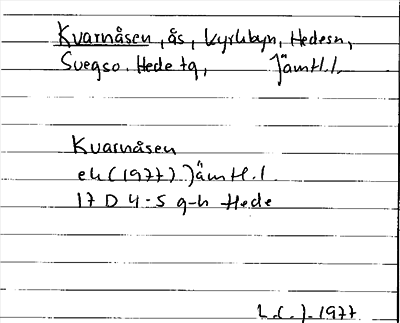 Kvarnåsen, ås, Kyrkbyn, Hedesn,
Svegso. Hede tg, Jämtl.l.
Kvarnåsen
ek (1977) Jämtl.l
17 D 4-5 g-h Hede
1977